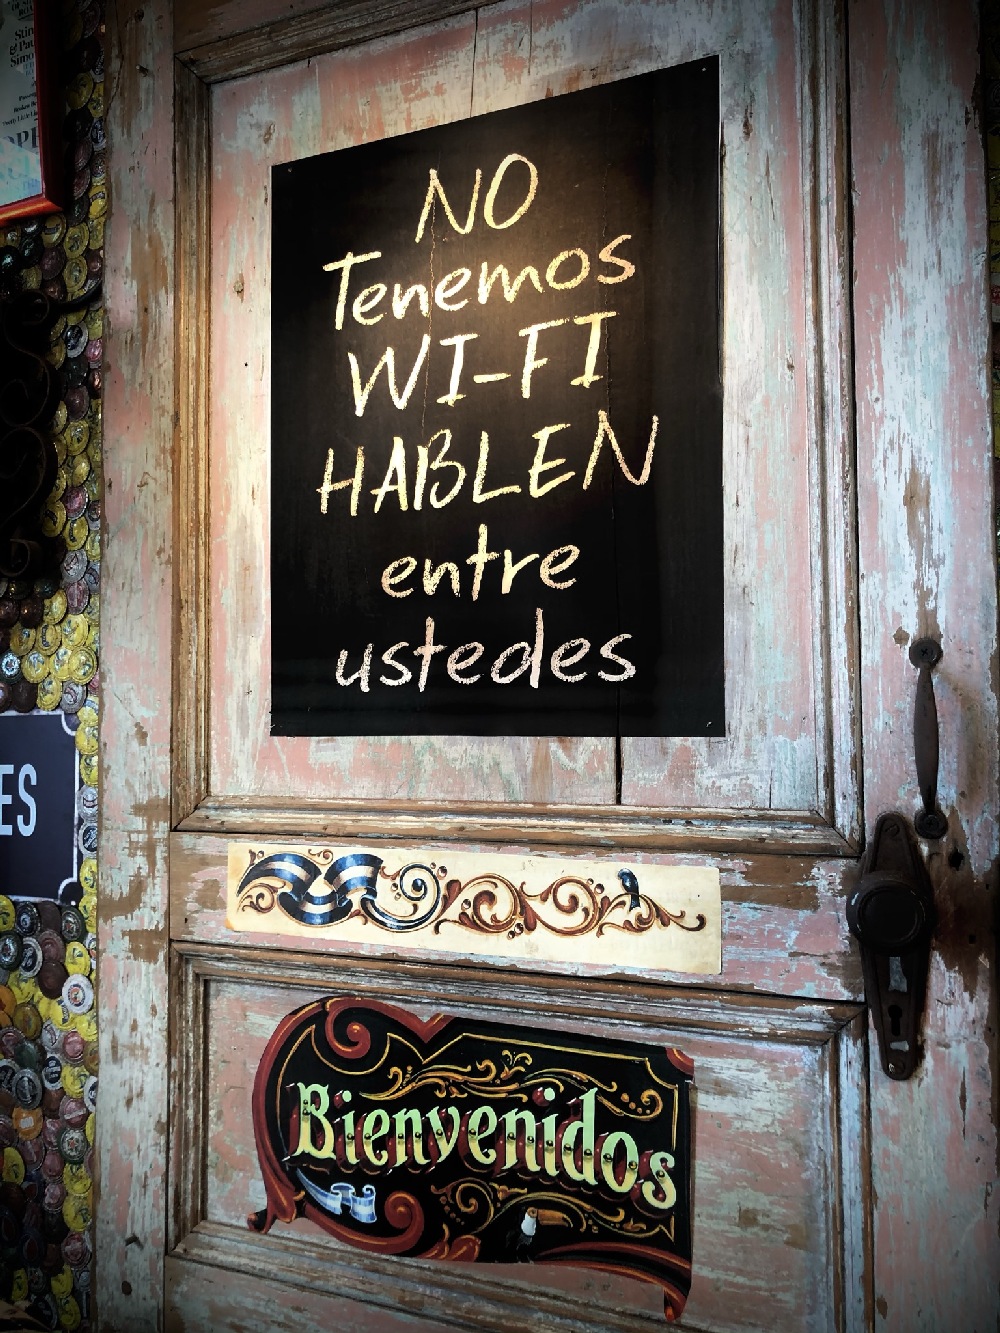 NO
Tenemos
WI-FI
HABLEN
entre
ustedes
ES
Bienvenidos